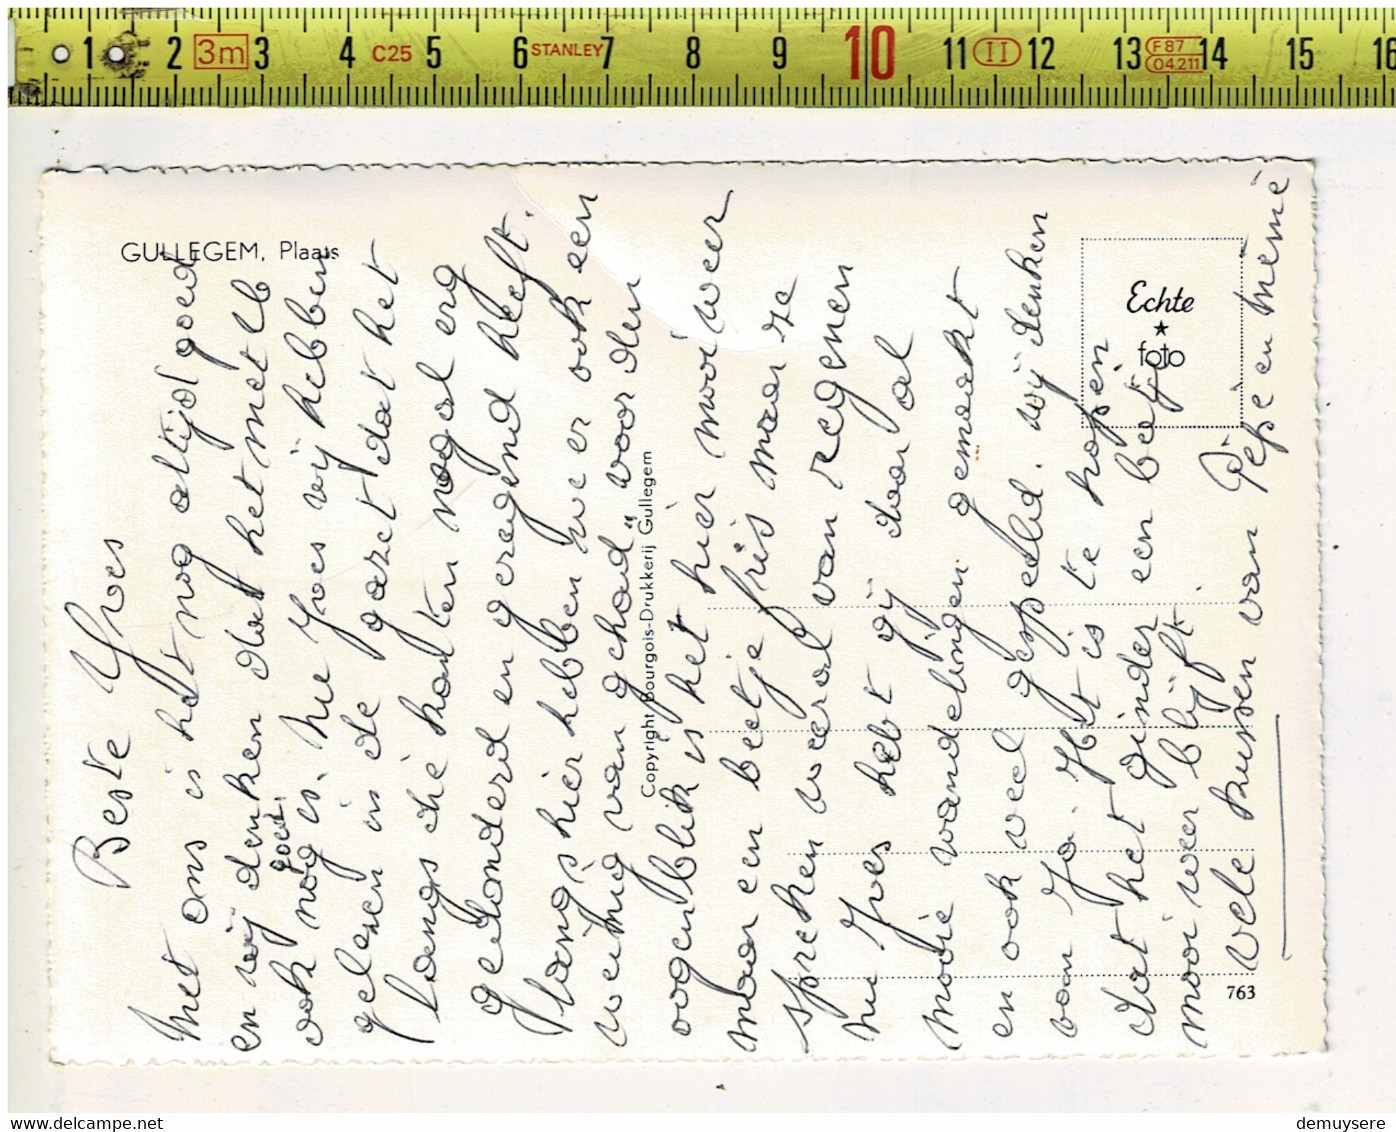 1 2 3m 3 4 C25 5 6 STANLEY 7 8 9 10 11 II 12 13 F87 04.211 14 15 16
GULLEGEM, Plaats
Echte
foto
Copyright Bourgois-Drukkerij Gullegem
763
Beste Yves
Met ons is het nog altijd goed
en wij denken dat het met U
goed
ook nog is. Nu Yves wij hebben
gelesen in de gazet dat het
langs die kanten nogal erg
gedonderd en geregend heeft.
langs hier hebben we er ook een
weinig van gehad, voor den
oogenblik is het hier mooi weer
maar een beetje fris maar ze
spreken weeral van regenen
nu Yves hebt gij daar al
mooie wandelingen gemaakt
en ook veel gespeeld. wij denken
van Ja. Het is te hopen
dat het ginder een beetje
mooi weer blijft.
vele kussen van Pepe en Mémé
delcampe.net
demuysere